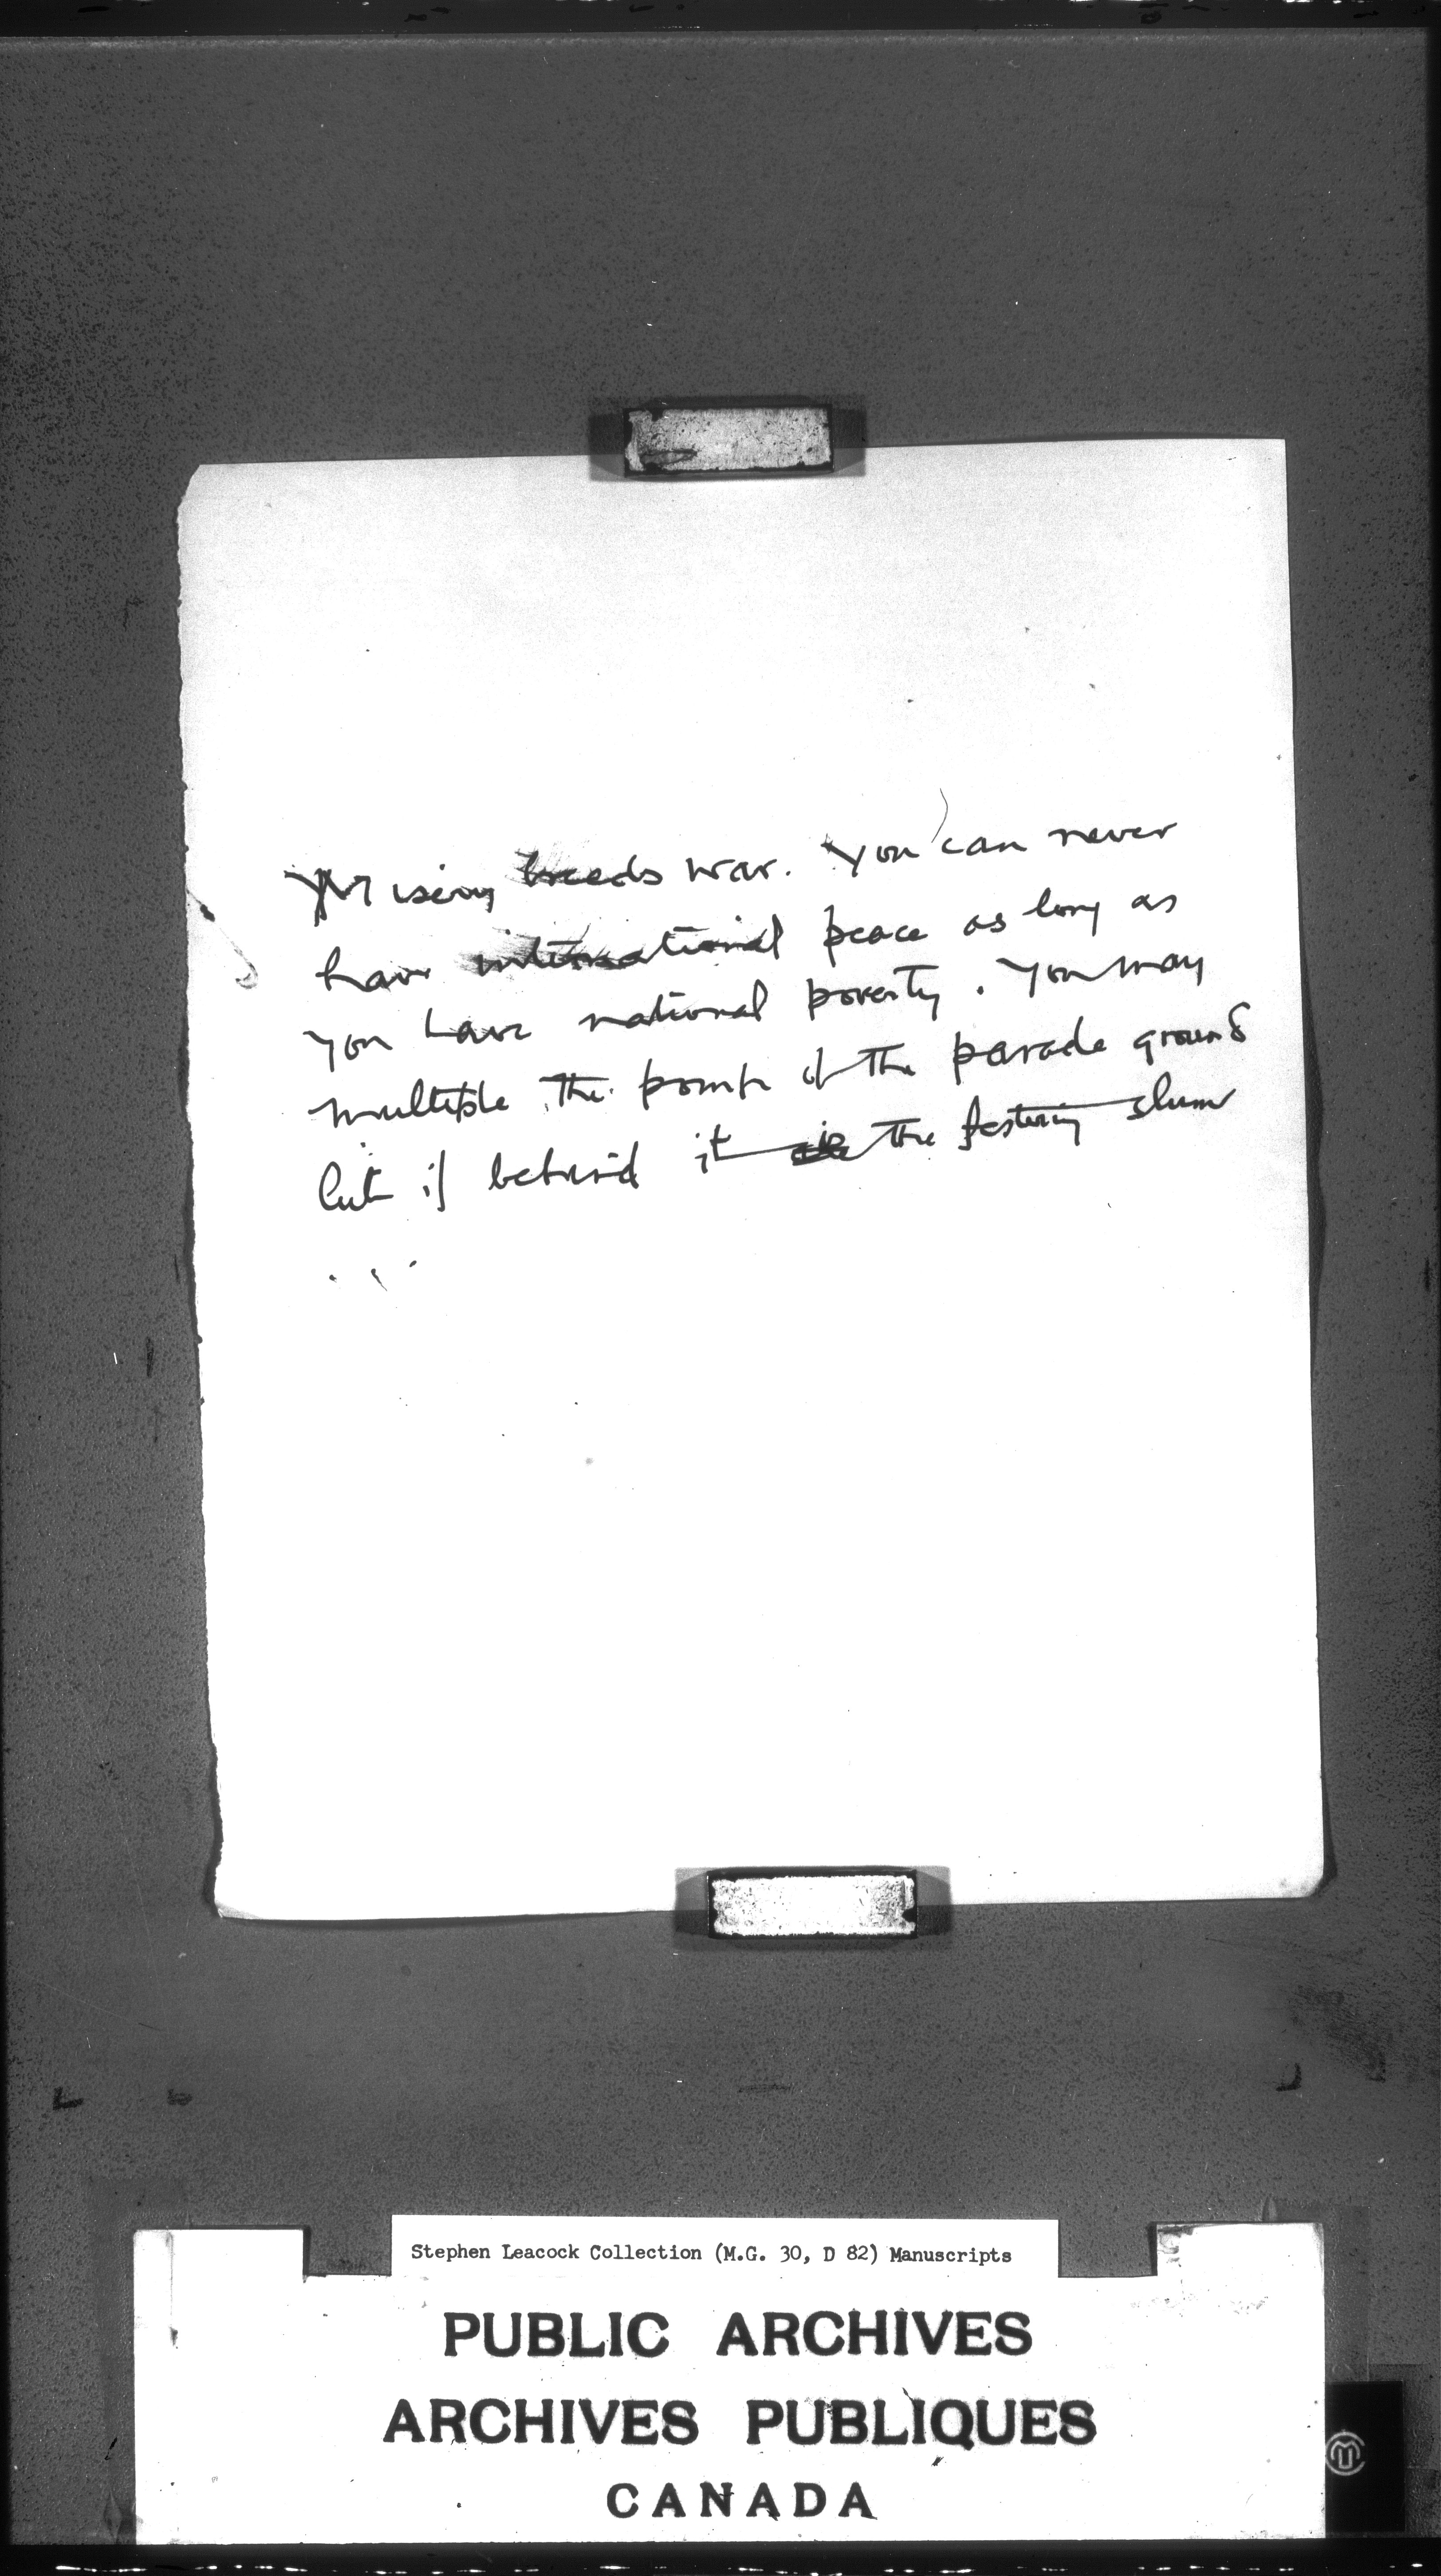 Misery breeds war. You can never
have international peace as long as
you have national poverty. You may
multiple the pomp of the parade ground
but if behind it is the festering slum
...
Stephen Leacock Collection (M.G. 30, D 82) Manuscripts
PUBLIC ARCHIVES
ARCHIVES PUBLIQUES
CANADA